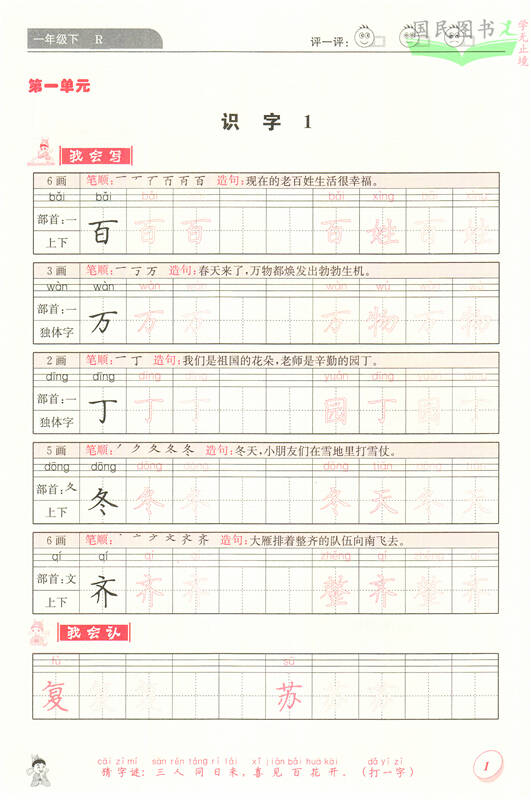 一年级下 R
评一评：
国民图书
学无止境
第一单元
识字 1
我会写
6画 笔顺：一 丆 丆 百 百 百 造句：现在的老百姓生活很幸福。
bǎi bǎi bǎi bǎi bǎi xìng bǎi xìng
部首：一
上下
百 百 百 百 姓 百 姓
3画 笔顺：一 丆 万 造句：春天来了，万物都焕发出勃勃生机。
wàn wàn wàn wàn wàn wù wàn wù
部首：一
独体字
万 万 万 万 物 万 物
2画 笔顺：一 丁 造句：我们是祖国的花朵，老师是辛勤的园丁。
dīng dīng dīng dīng yuán dīng yuán dīng
部首：一
独体字
丁 丁 丁 园 丁 园 丁
5画 笔顺：丿 ク 夂 冬 冬 造句：冬天，小朋友们在雪地里打雪仗。
dōng dōng dōng dōng dōng tiān dōng tiān
部首：夂
上下
冬 冬 冬 冬 天 冬 天
6画 笔顺：丶 亠 ナ 文 齐 齐 造句：大雁排着整齐的队伍向南飞去。
qí qí qí qí zhěng qí zhěng qí
部首：文
上下
齐 齐 齐 整 齐 整 齐
我会认
fù sū
复 复 复 苏 苏 苏
cāi zì mí sān rén tóng rì lái xǐ jiàn bǎi huā kāi dǎ yí zì
猜字谜：三人同日来，喜见百花开。（打一字）
1